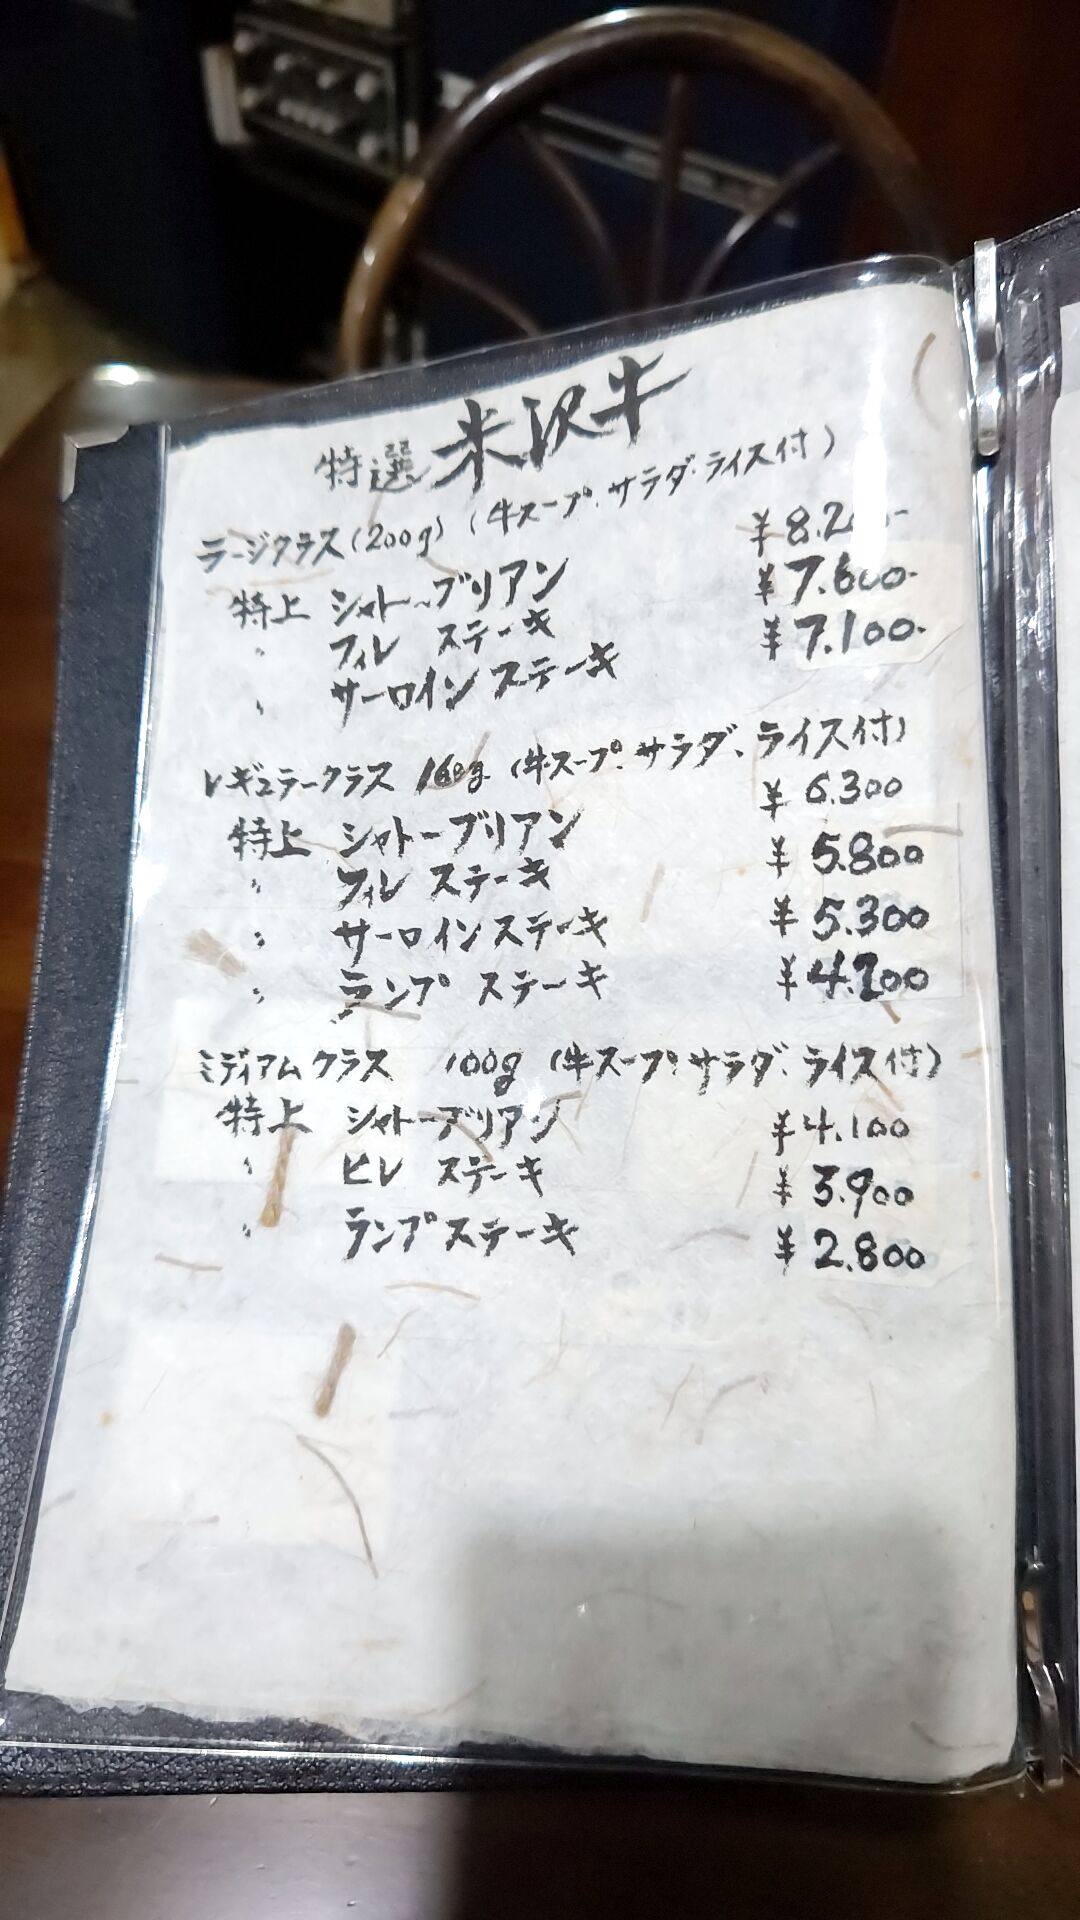 特選 米沢牛
ラージクラス(200g) (牛スープ、サラダ・ライス付)
特上 シャトーブリアン
〃 フィレ ステーキ ¥7.600-
〃 サーロインステーキ ¥7.100-
レギュラークラス 160g (牛スープ、サラダ、ライス付)
特上 シャトーブリアン ¥6.300
〃 フィレ ステーキ ¥5.800
〃 サーロインステーキ ¥5.300
〃 ランプ ステーキ ¥4.200
ミディアムクラス 100g (牛スープ、サラダ、ライス付)
特上 シャトーブリアン ¥4.100
〃 ヒレ ステーキ ¥3.900
〃 ランプステーキ ¥2.800